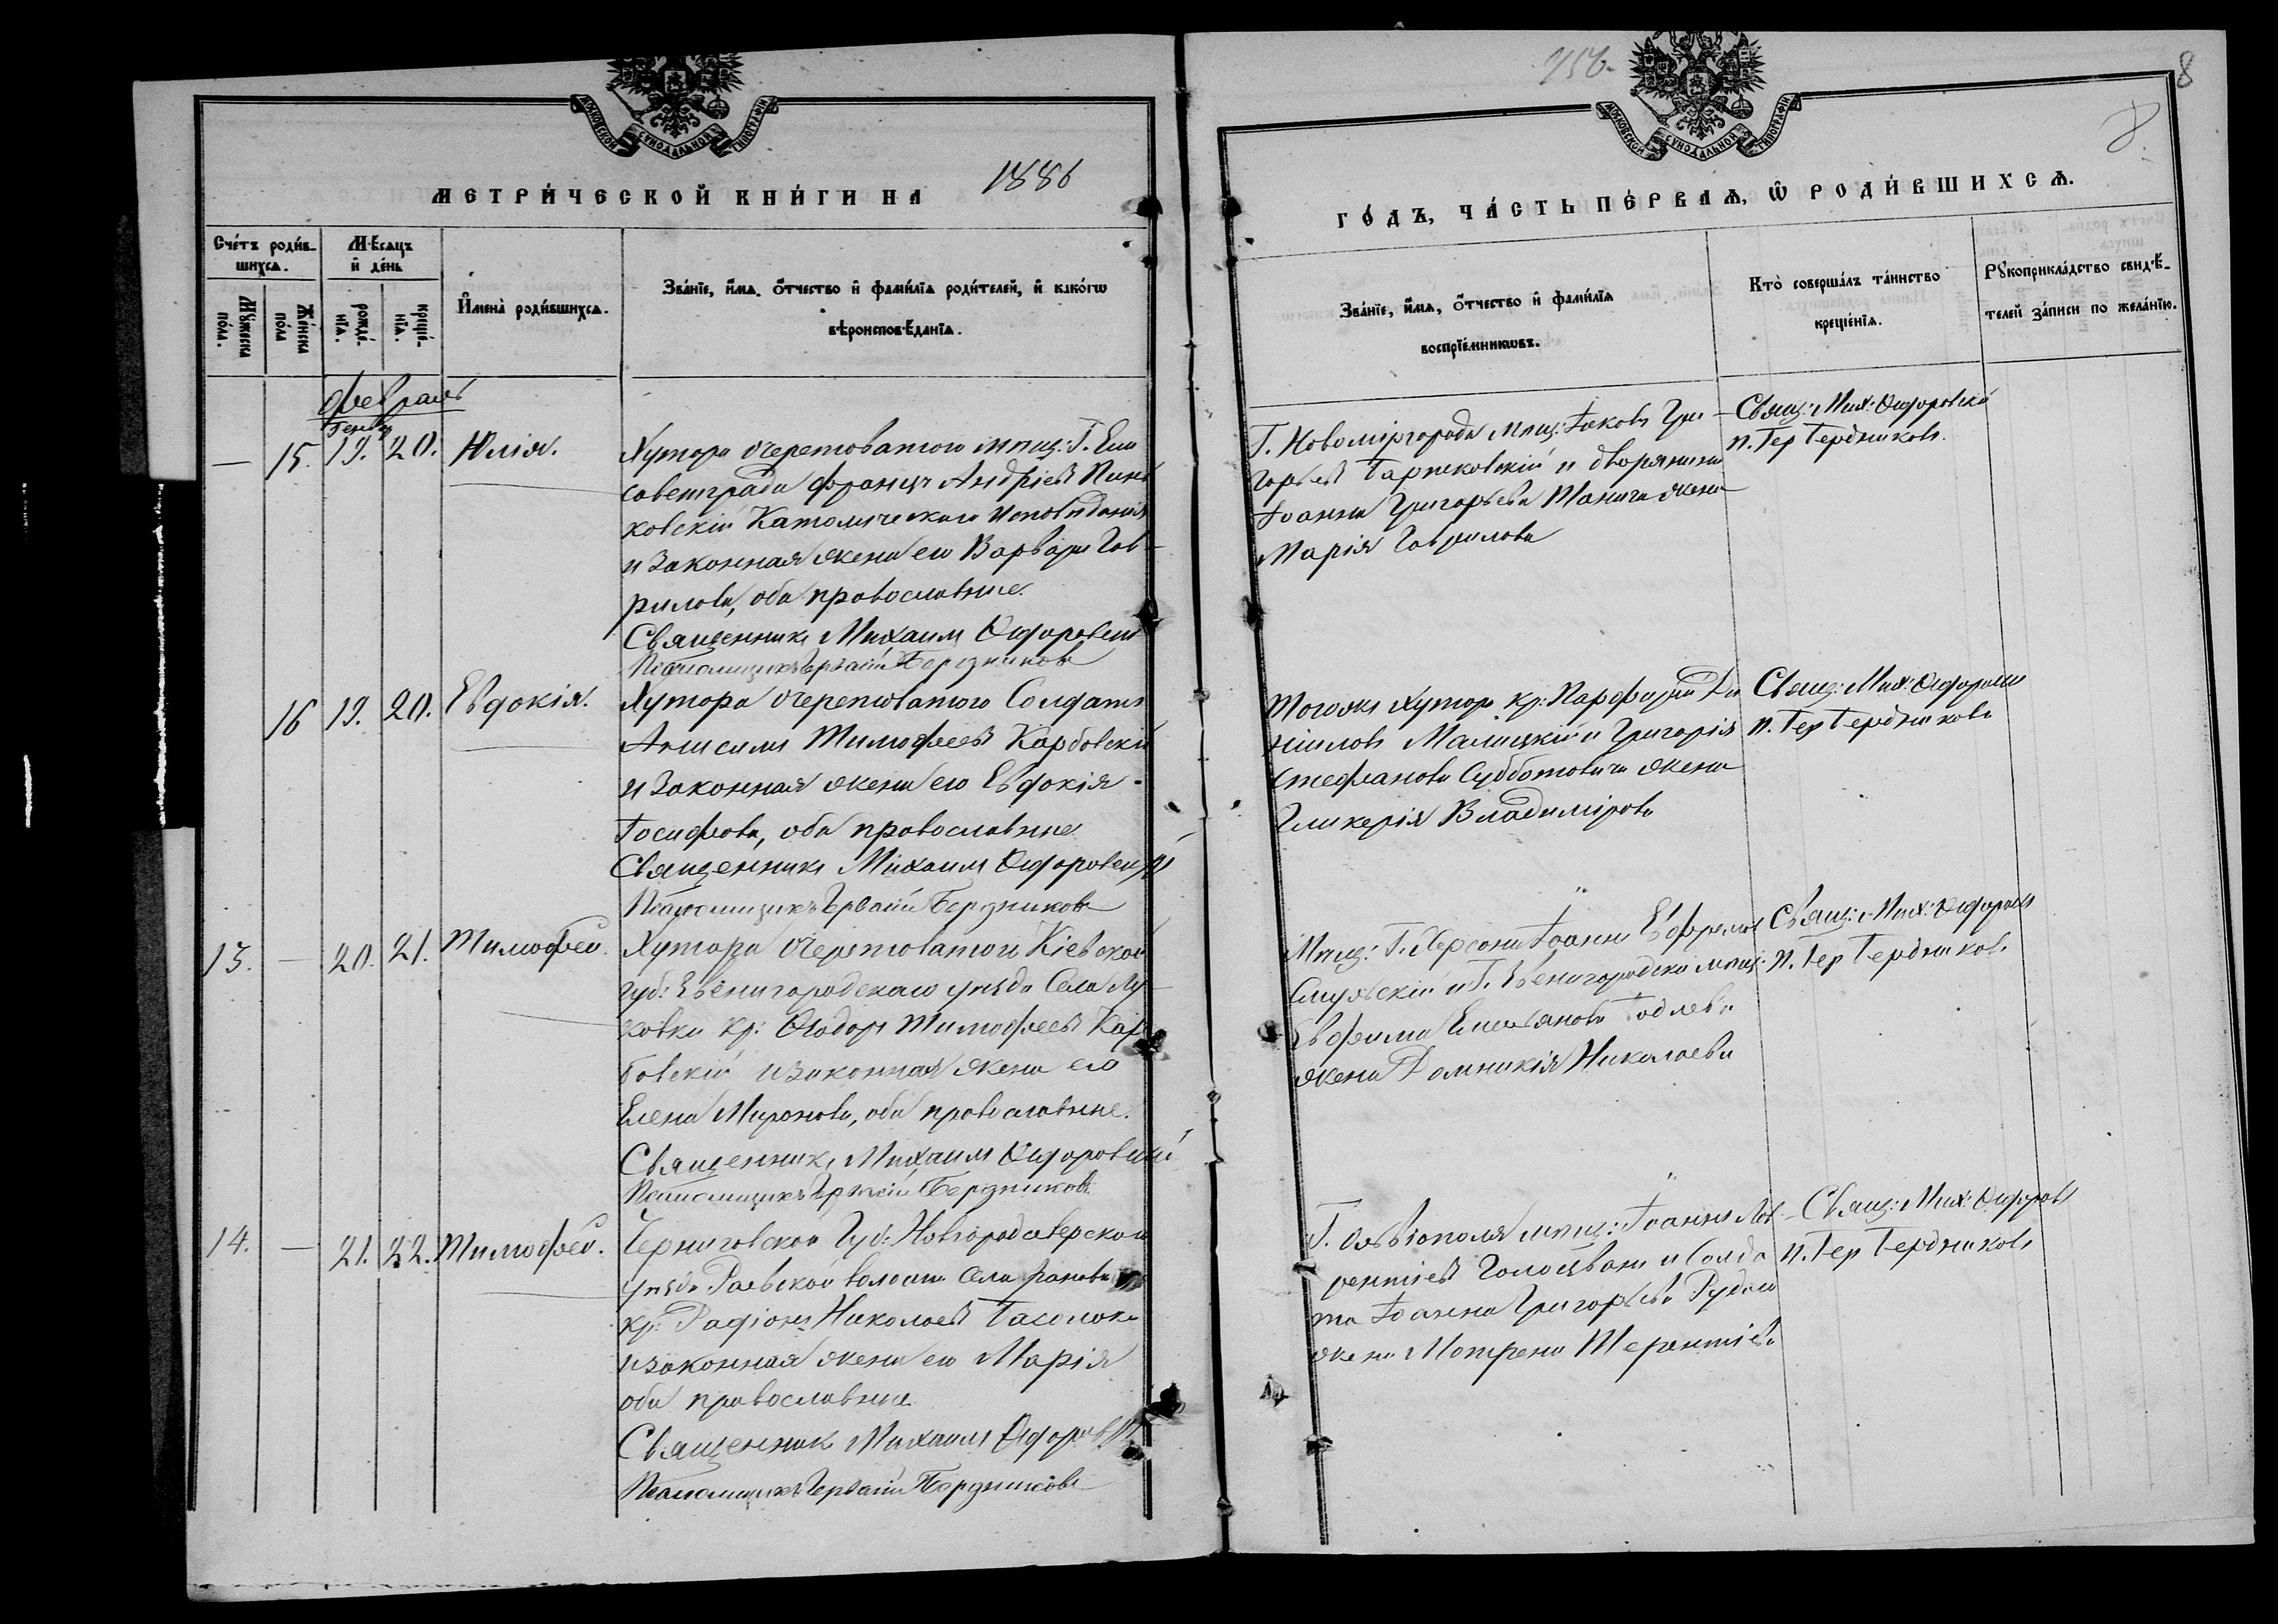 МОСКОВСКОЙ СѴНОДАЛЬНОЙ ТИПОГРАФІИ
МЕТРИ́ЧЕСКОЙ КНИ́ГИ НА 1886
Сче́тъ роди́в-
шихся.
Мѣсяцъ
и҆ де́нь
Мꙋ́жеска
по́ла.
Же́нска
по́ла
рожде́-
нїѧ.
креще́-
нїѧ.
И҆мена̀ роди́вшихсѧ.
Зва́нїе, и҆́мѧ, ѻ҆́тчество и҆ фами́лїѧ роди́телей, и҆ како́гѡ
вѣроисповѣ́данїѧ.
Февраль
— 15. 19. 20. Юлія.
Хутора Очеретоватого мѣщ: Г. Ели
саветграда Францъ Андріевъ
ковскій Католическаго исповѣданія
и законная жена его Варвара Гав-
рилова, оба православные.
Священникъ Михаилъ Ѳедоровскій
Псаломщикъ Гервасій Бердниковъ
16 19. 20. Евдокія.
Хутора Очеретоватого Солдатъ
Анисимъ Тимофеевъ Карбовскій
и законная жена его Евдокія
Іосифова, оба православные
Священникъ Михаилъ Ѳедоровскій
Псаломщикъ Гервасій Бердниковъ
13. — 20. 21. Тимофей.
Хутора Очеретоватого Кіевской
губ: Звенигородскаго уѣзда Села
ховки кр: Ѳеодоръ Тимофеевъ Кар
бовскій и законная жена его
Елена Миронова, оба православные.
Священникъ Михаилъ Ѳедоровскій
Псаломщикъ Гервасій Бердниковъ
14. — 21. 22. Тимофей.
Черниговской Губ: Новгородсѣверскаго
уѣзда волости Села
кр: Николаевъ
и законная жена его Марія
оба православные
Священникъ Михаилъ Ѳедоровскій
Псаломщикъ Гервасій Бердниковъ
8
8.
МОСКОВСКОЙ СѴНОДАЛЬНОЙ ТИПОГРАФІИ
ГО́ДЪ, ЧА́СТЬ ПЕ́РВАѦ, Ѿ РОДИ́ВШИХСѦ.
Зва́нїе, и҆́мѧ, ѻ҆́тчество и҆ фами́лїѧ
воспрїе́мникѡвъ.
Кто̀ соверша́лъ та́инство
креще́нїѧ.
Рꙋкоприкла́дство свидѣ́-
телей за́писи по жела́нїю.
Г. Новомиргорода мѣщ: Іаковъ Гри-
горьевъ и дворянина
Іоанна Григорьева жена
Марія Гаврилова
Свящ: Мих: Ѳедоровскій
п. Гер Бердниковъ.
Тогожъ хутора кр: Парфирій Да
ніиловъ Малицкій и Григорія
Стефанова Субботовича жена
Гликерія Владимірова
Свящ: Мих: Ѳедоровскій
п. Гер Бердниковъ
Мѣщ: Г. Херсона Іоаннъ Ефремовъ
и Г. Звенигородки мѣщ:
Евфима Емельянова
жена Домникія Николаева
Свящ: Мих: Ѳедоровскій
п. Гер Бердниковъ
Г. Ольвіополя мѣщ: Іоаннъ Лав-
рентіевъ и Солда
та Іоанна Григорьева
жена Мотрена Терентіева
Свящ: Мих: Ѳедоровскій
п. Гер Бердниковъ